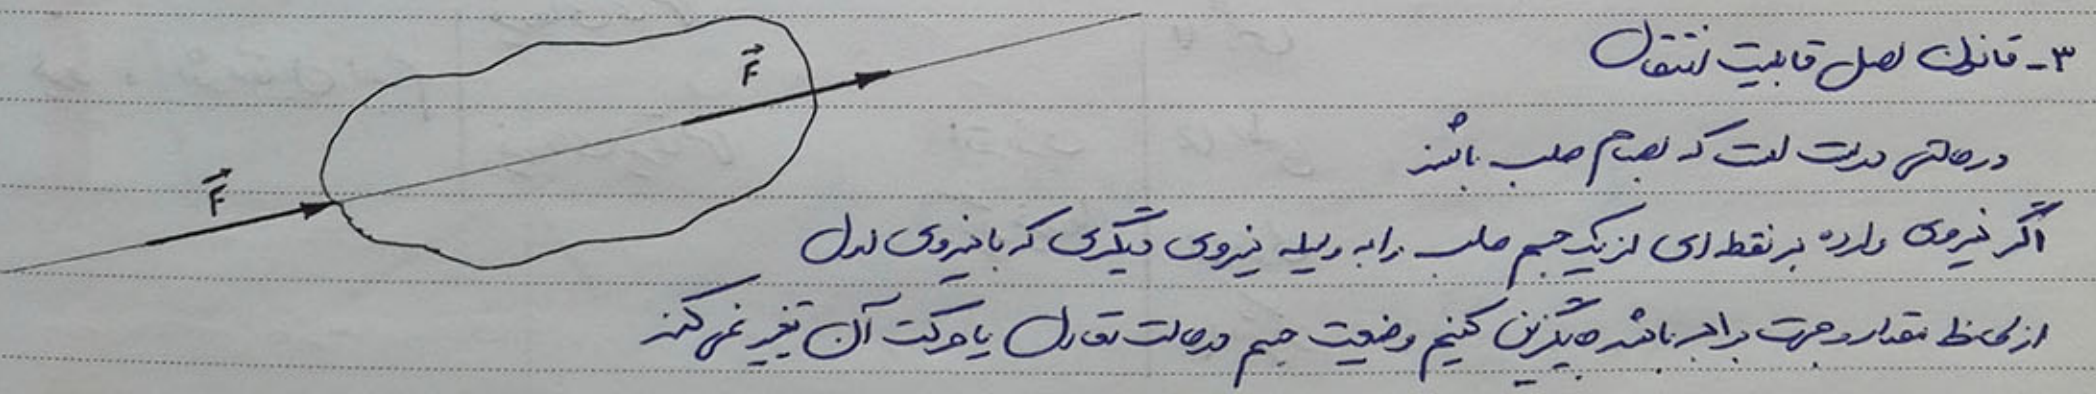 ۳- قانون اصل قابلیت انتقال
درحالتی درست است که اجسام صلب باشند
اگر نیروی وارده بر نقطه ای از یک جسم صلب را به وسیله نیروی دیگری که با نیروی اول
از لحاظ مقدار و جهت برابر باشد جایگزین کنیم وضعیت جسم درحالت تعادل یا حرکت آن تغییر نمی کند
F
F